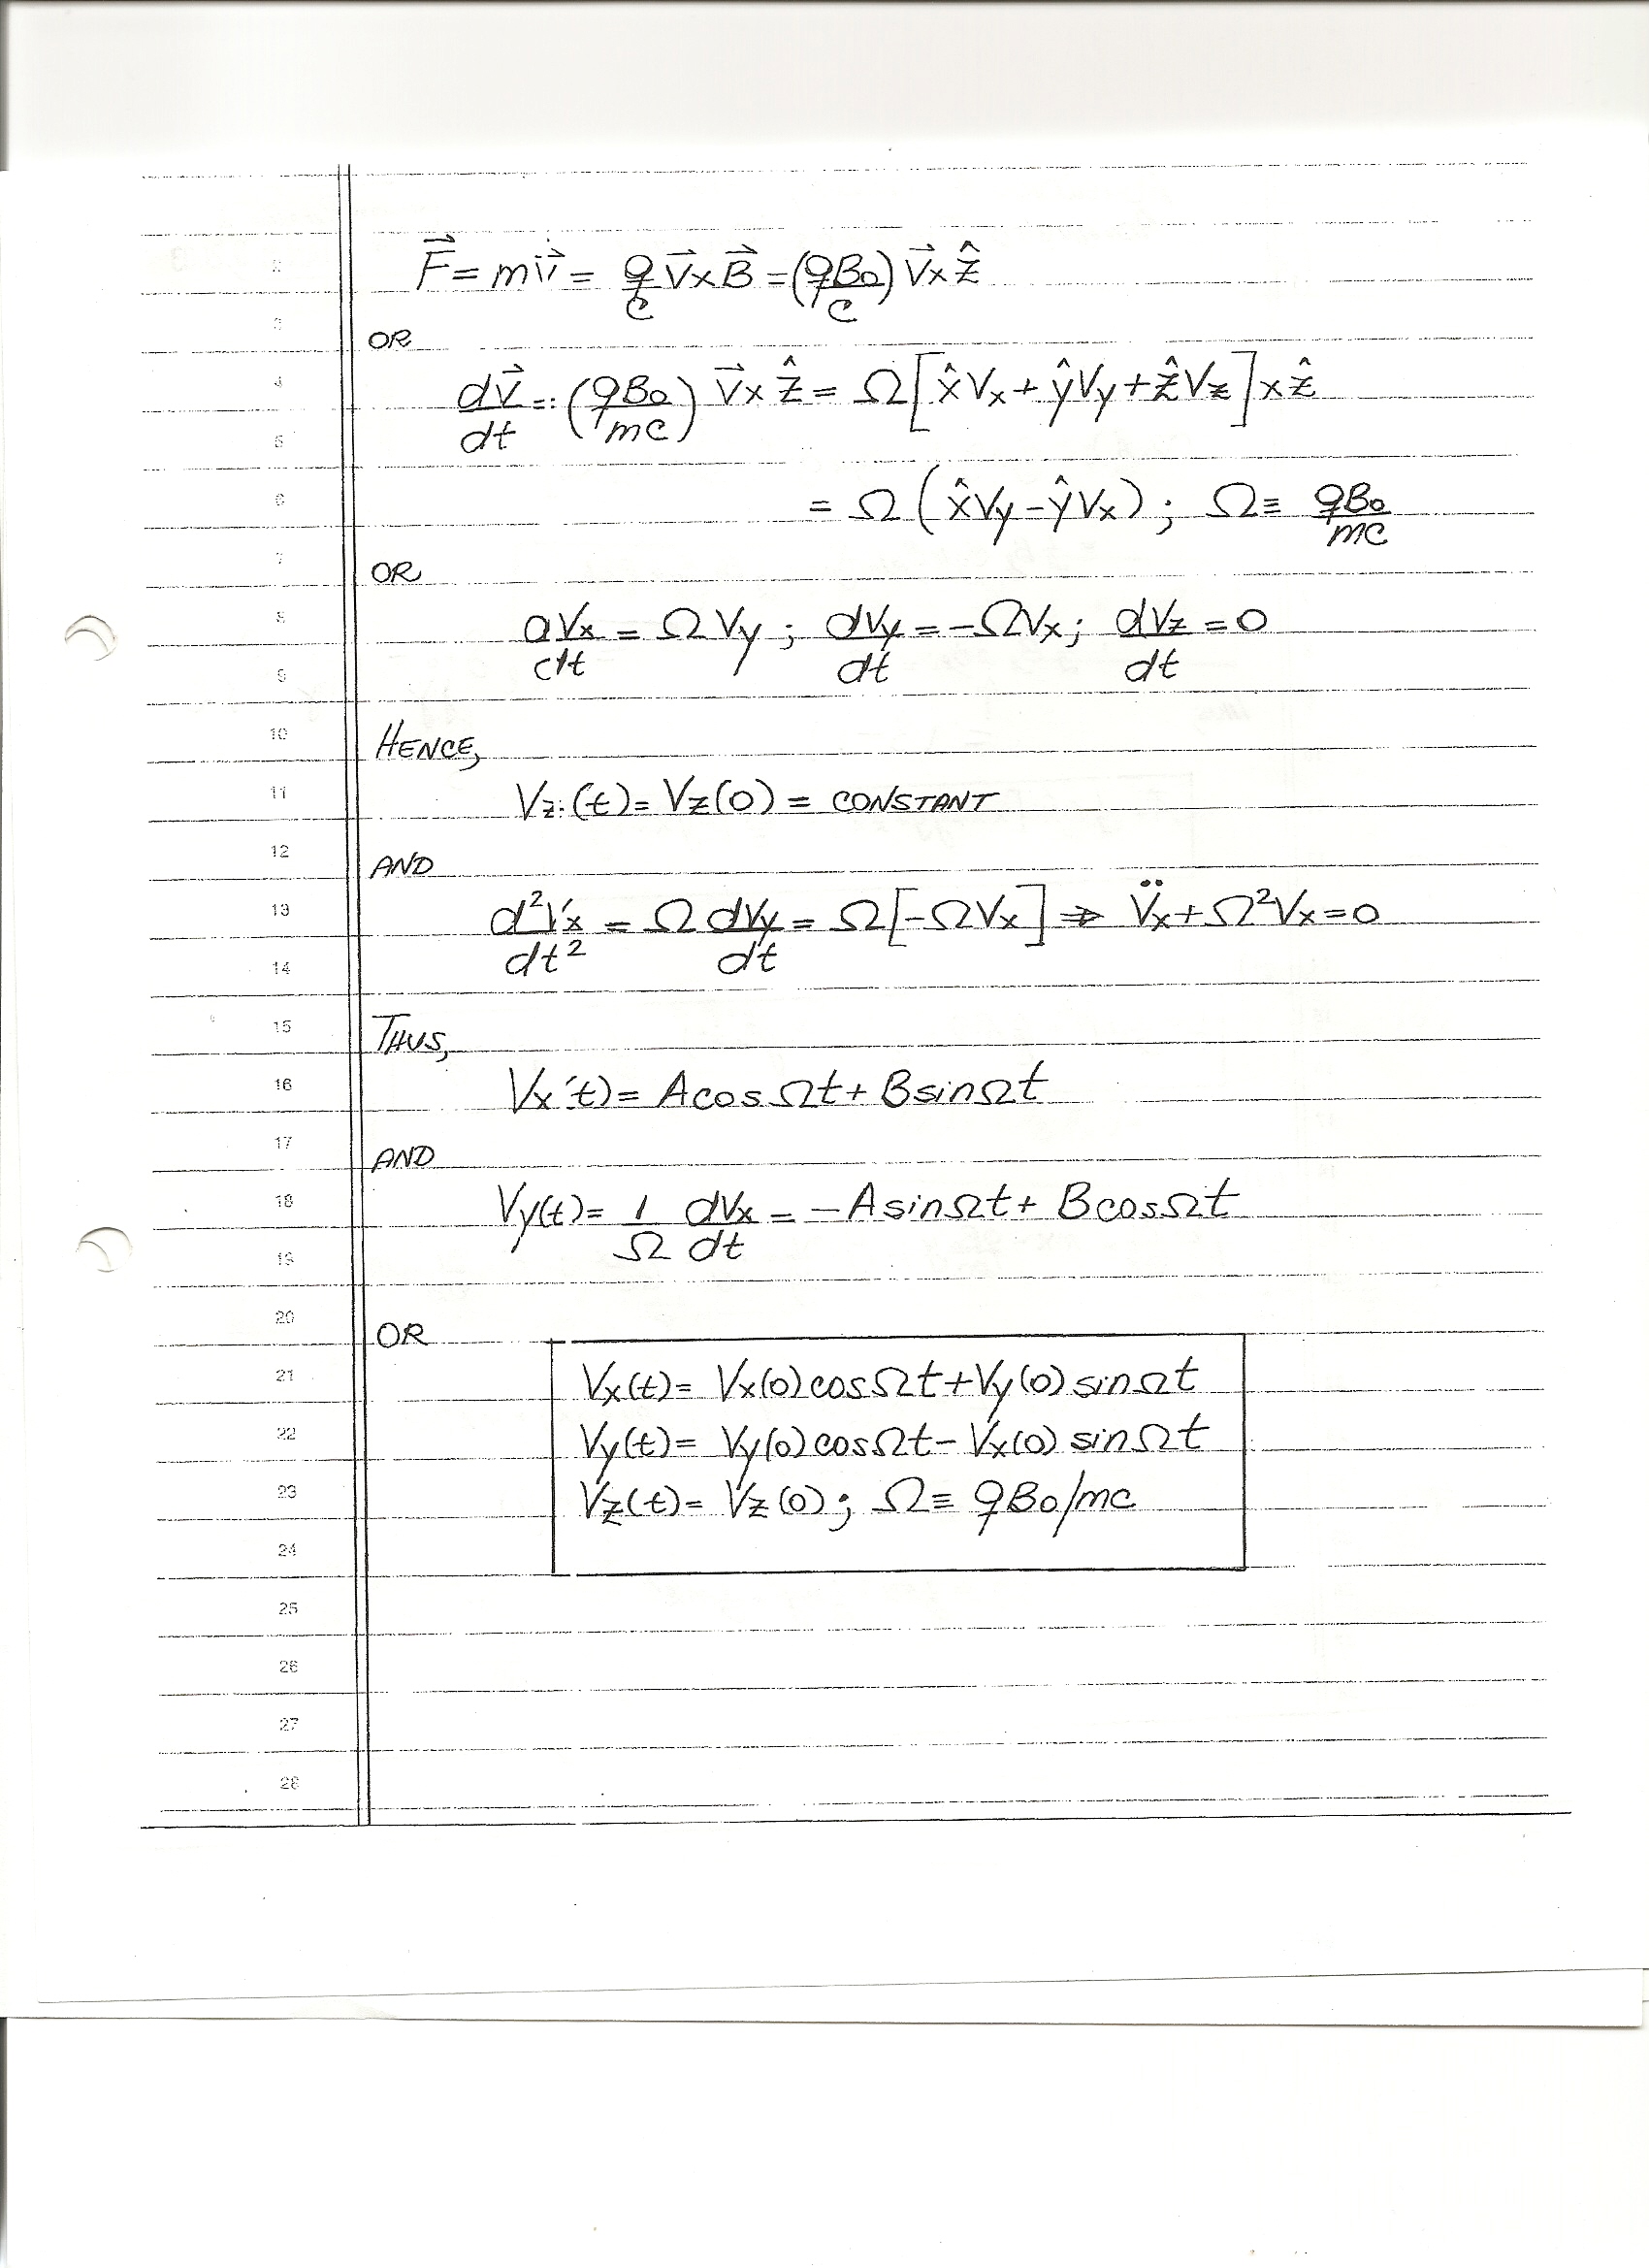 2
F⃗ = m v⃗̇ = q/c v⃗ x B⃗ = (qB₀/c) v⃗ x ẑ
3
OR
4
dv⃗/dt = (qB₀/mc) v⃗ x ẑ = Ω[x̂Vx + ŷVy + ẑVz] x ẑ
5
6
= Ω(x̂Vy - ŷVx); Ω ≡ qB₀/mc
7
OR
8
dVx/dt = ΩVy; dVy/dt = -ΩVx; dVz/dt = 0
9
10
HENCE,
11
Vz(t) = Vz(0) = CONSTANT
12
AND
13
d²Vx/dt² = Ω dVy/dt = Ω[-ΩVx] ⇒ V̈x + Ω²Vx = 0
14
15
THUS,
16
Vx(t) = A cos Ωt + B sin Ωt
17
AND
18
Vy(t) = 1/Ω dVx/dt = -A sin Ωt + B cos Ωt
19
20
OR
21
Vx(t) = Vx(0) cos Ωt + Vy(0) sin Ωt
22
Vy(t) = Vy(0) cos Ωt - Vx(0) sin Ωt
23
Vz(t) = Vz(0); Ω ≡ qB₀/mc
24
25
26
27
28